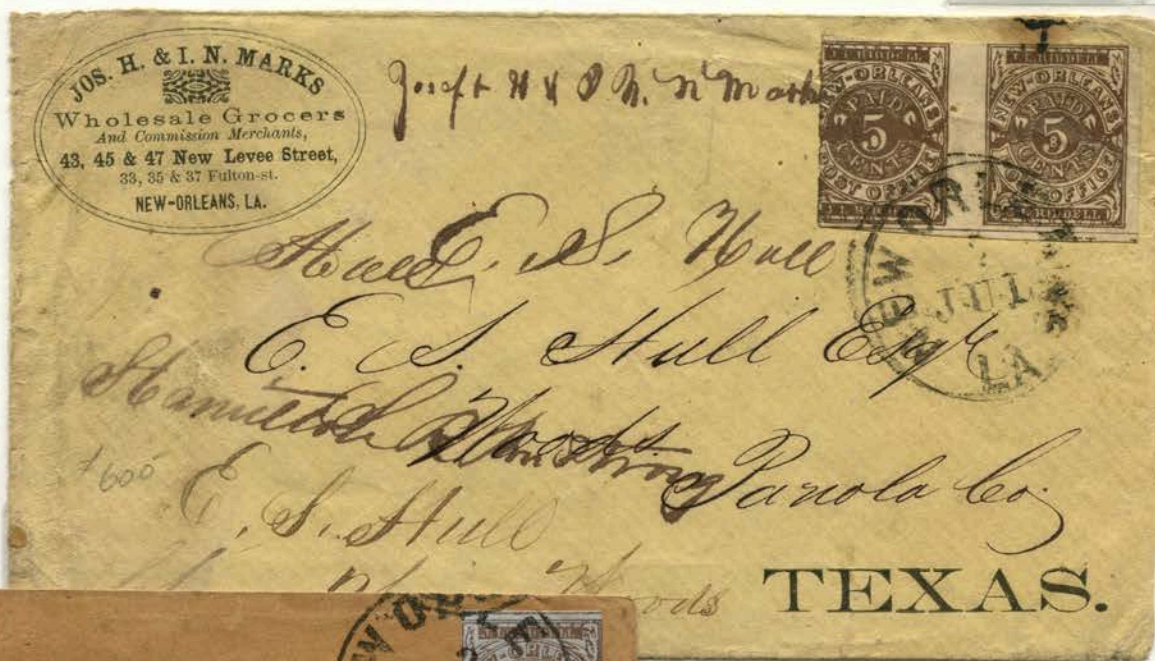 JOS. H. & I. N. MARKS
Wholesale Grocers
And Commission Merchants,
43, 45 & 47 New Levee Street,
33, 35 & 37 Fulton-st.
NEW-ORLEANS, LA.
J. L. RIDDELL
NEW-ORLEANS
PAID
5
CENTS
POST OFFICE
J. L. RIDDELL
J. L. RIDDELL
NEW-ORLEANS
PAID
5
CENTS
POST OFFICE
J. L. RIDDELL
NEW ORLEANS
JUL
LA
E. S. Hull
E. S. Hull Esqr
Woods
Panola Co
600
E. S. Hull
Woods
TEXAS.